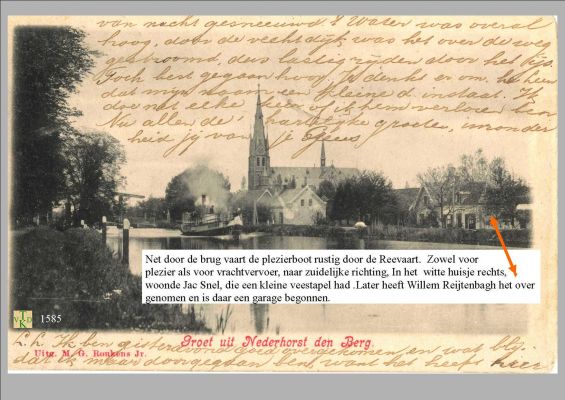 van nacht gesneeuwd & Water was overal
hoog, door de vechtdijk was het over de weg
gestroomd, dus lastig rijden door het ijs.
Toch best gegaan hoor. Ik denk er om, hoor
dat mijn naam een kleine d. instaat. Ik
doe net elke keer of ik hem verloren ben
Nu allen de hartelijke groeten, waaronder
heid jij van je
Net door de brug vaart de plezierboot rustig door de Reevaart. Zowel voor
plezier als voor vrachtvervoer, naar zuidelijke richting, In het witte huisje rechts,
woonde Jac Snel, die een kleine veestapel had .Later heeft Willem Reijtenbagh het over
genomen en is daar een garage begonnen.
1585
Groet uit Nederhorst den Berg.
Uitg. M. G. Ronkens Jr.
L.L. Ik ben gisterenavond goed overgekomen en was blij
dat ik maar doorgegaan ben, want het heeft heer